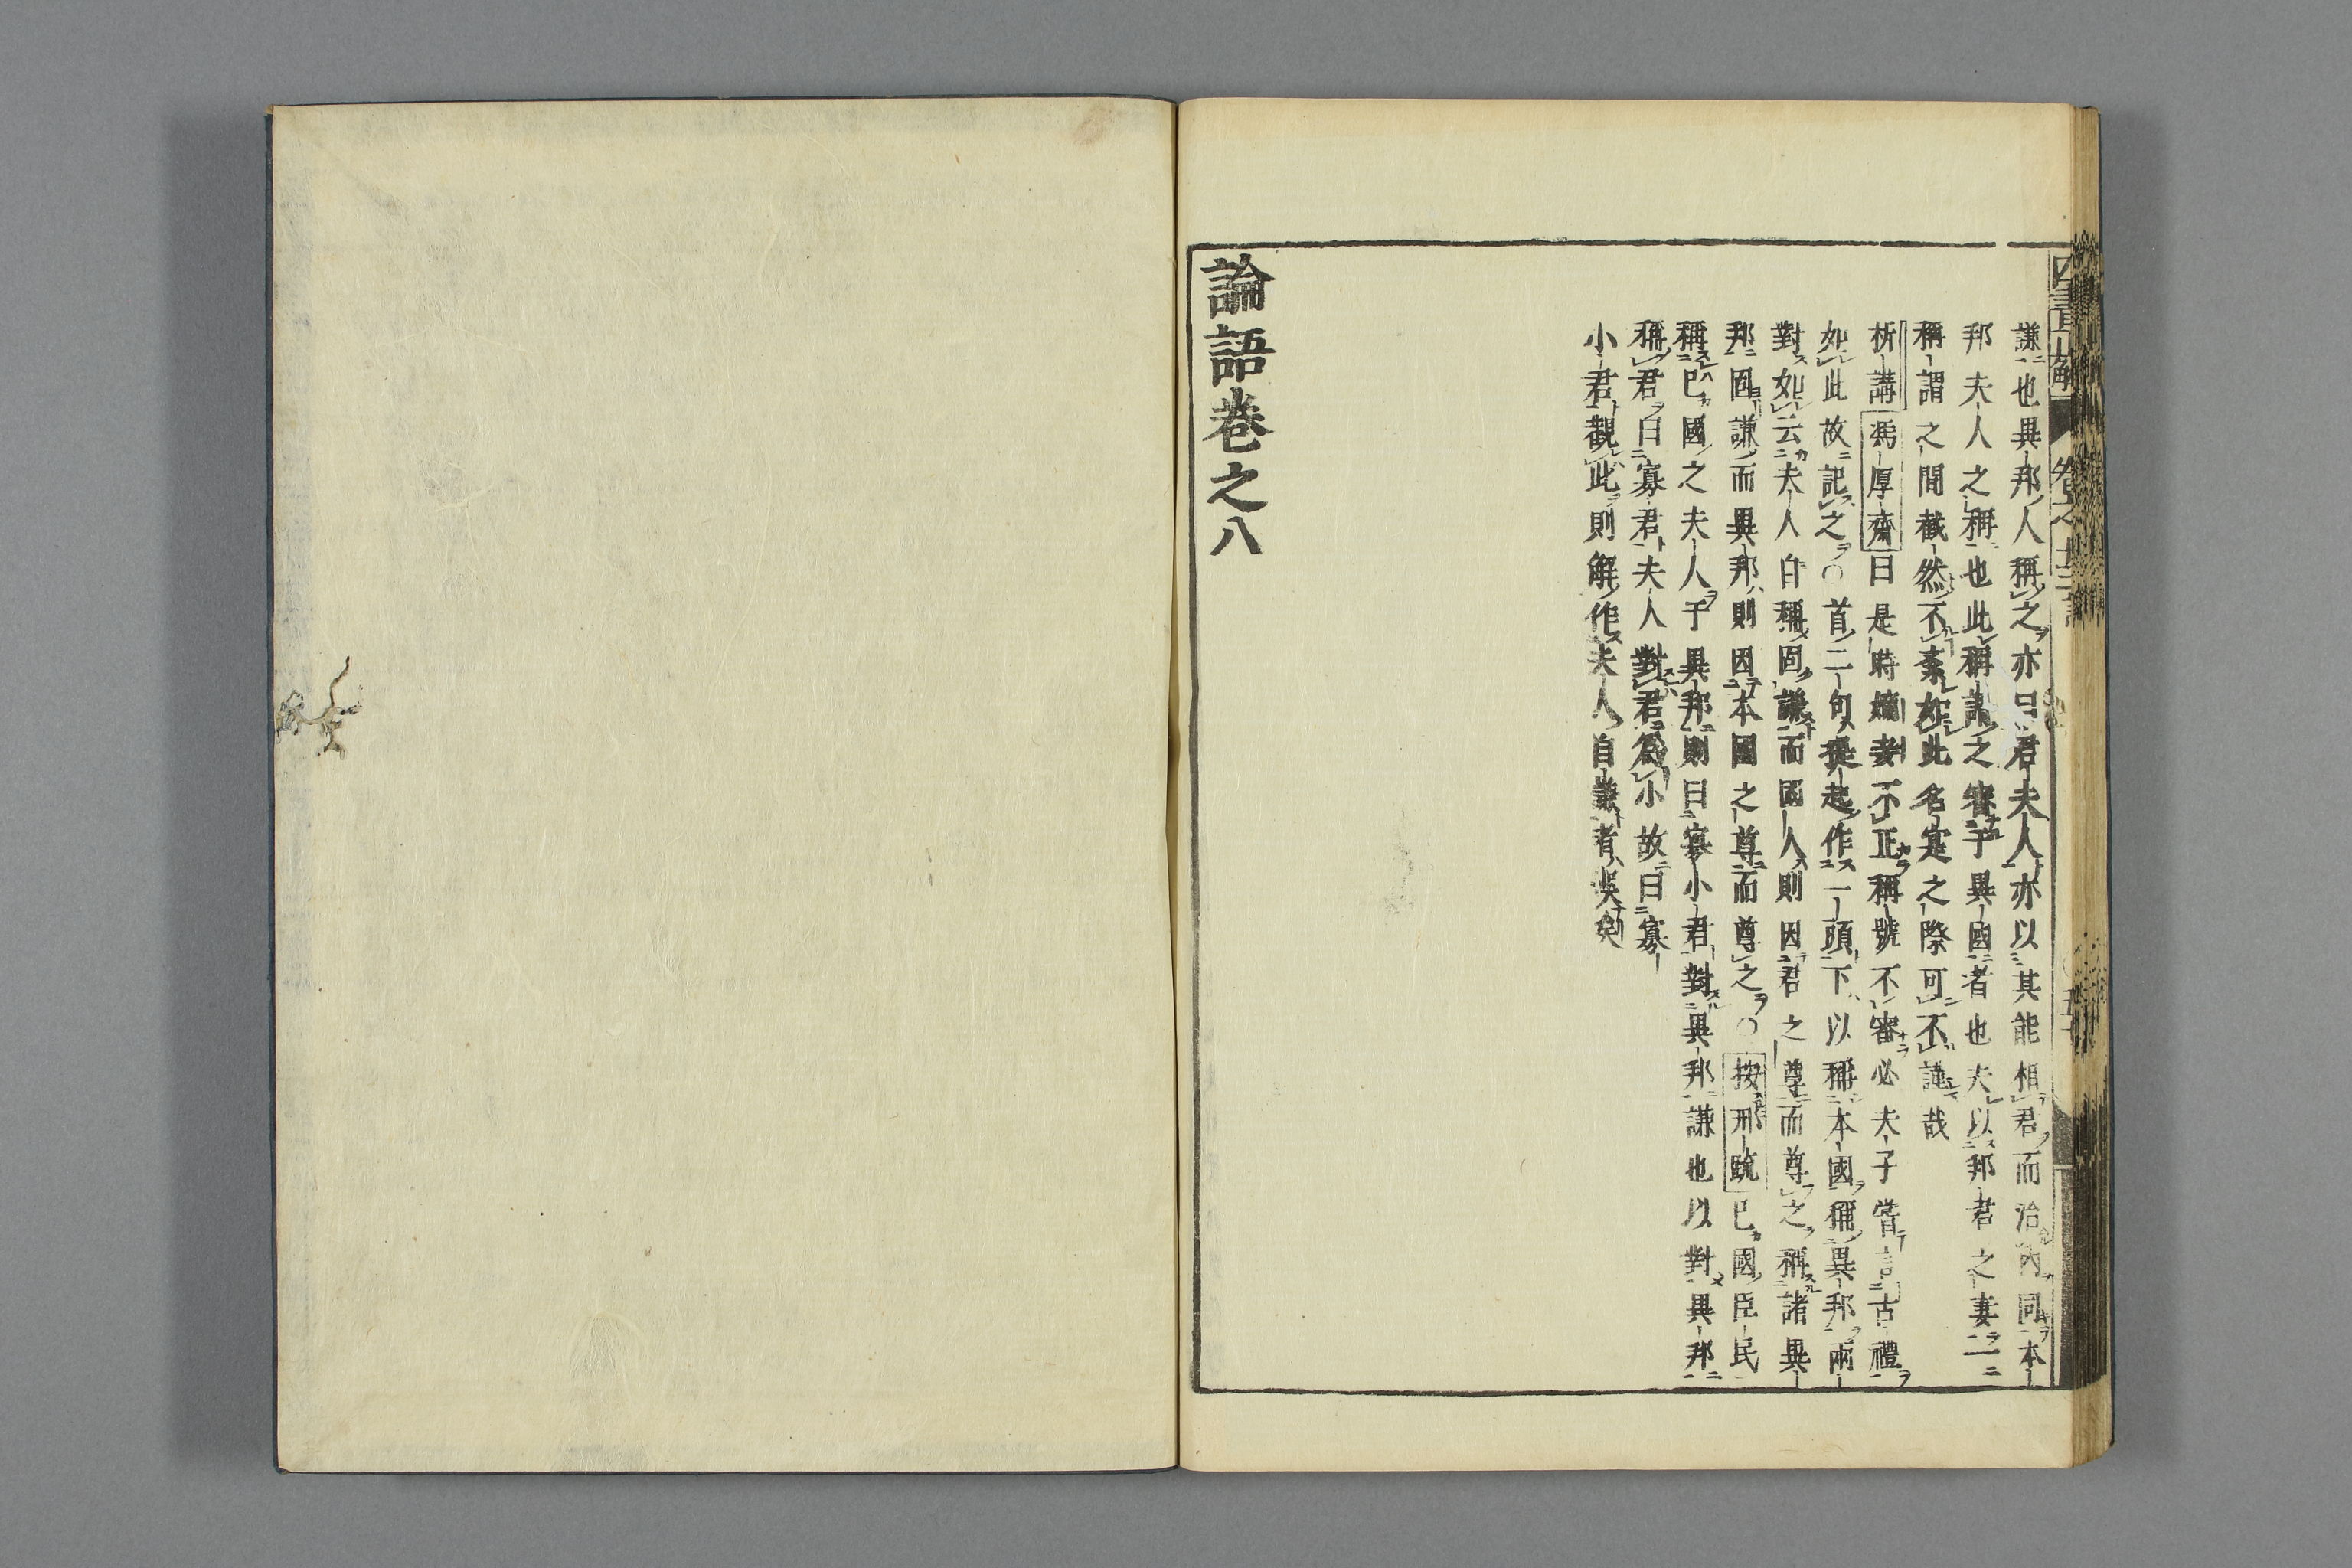 謙也異邦人稱之亦曰君夫人亦以其能相君而治內同本
邦夫人之稱也此稱謂之審于異國者也夫以邦君之妻一
稱謂之間截然不紊如此名寔之際可不謹哉
析講馮厚齋曰是時嫡妾不正稱號不審必夫子嘗言古禮
如此故記之○首二句提起作一頭下以稱本國稱異邦兩
對如云夫人自稱固謙而國人則因君之尊而尊之稱諸異
邦固謙而異邦則因本國之尊而尊之○按邢疏已國臣民
稱已國之夫人于異邦則曰寡小君對異邦謙也以對異邦
稱君曰寡君夫人對君爲小故曰寡
小君觀此則解作夫人自謙者誤矣
論語卷之八
四書 卷之